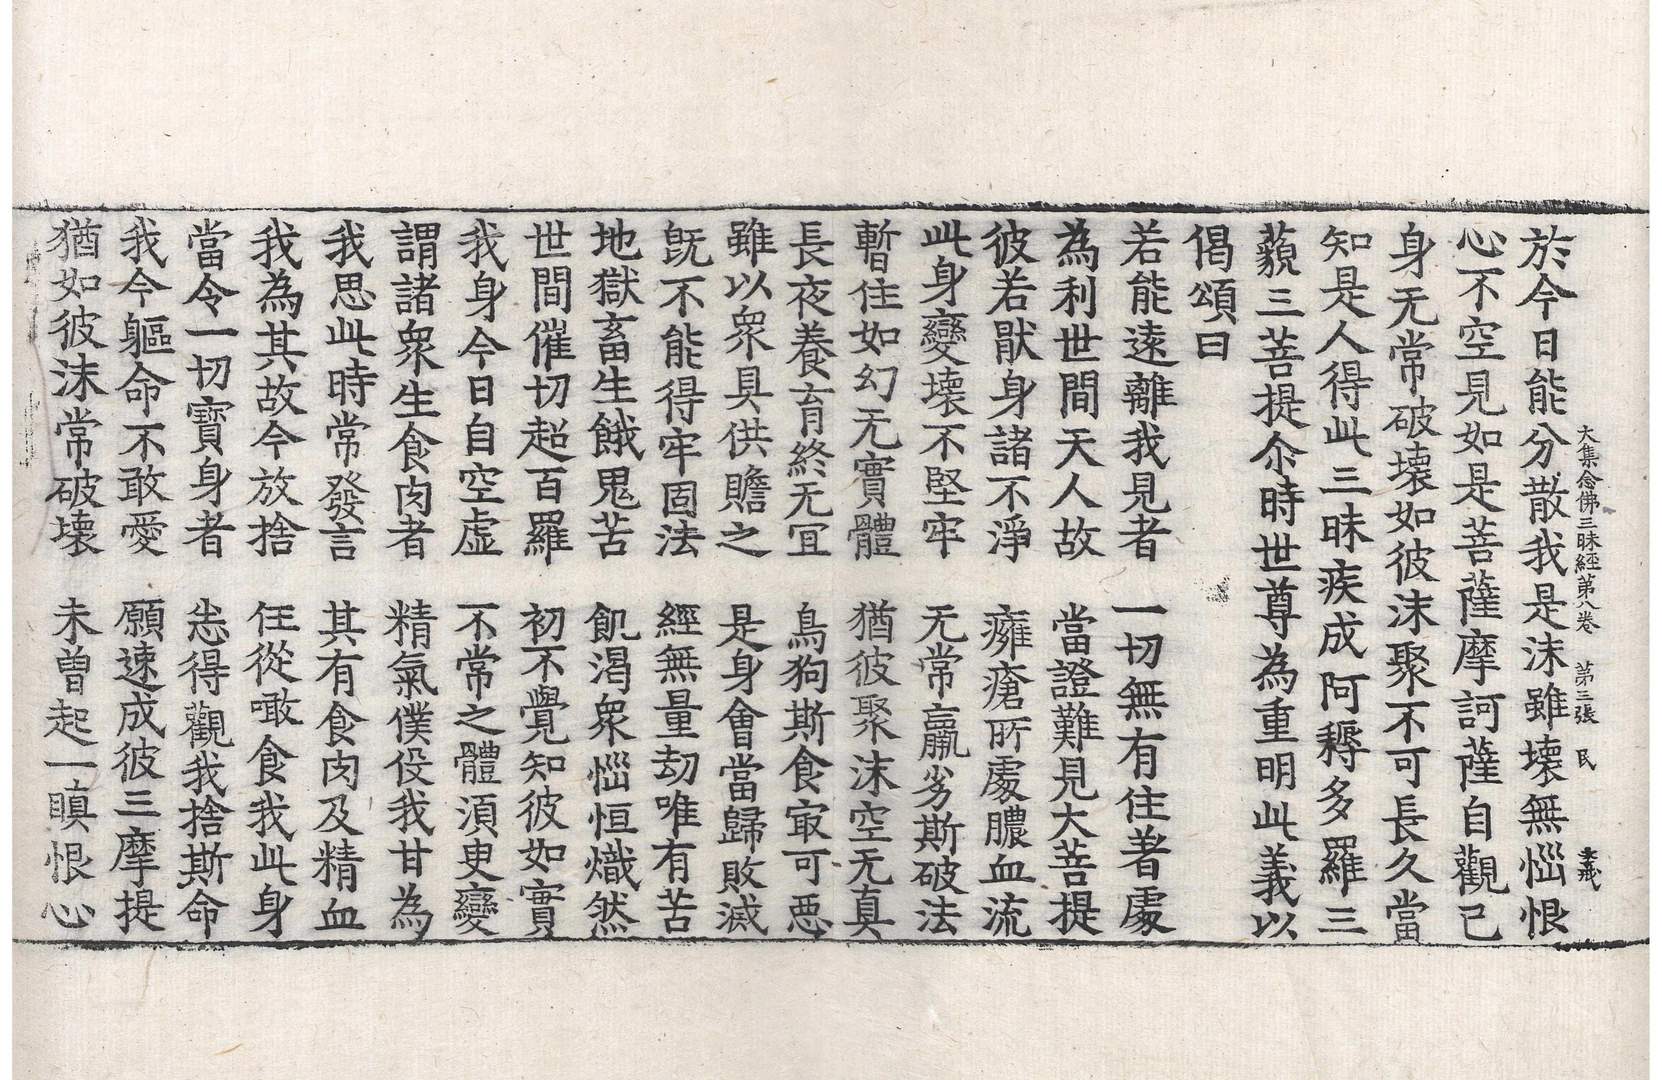 大集念佛三昧經第八卷　第三張　民　李義
於今日能分散我是沫雖壞無惱恨
心不空見如是菩薩摩訶薩自觀己
身无常破壞如彼沫聚不可長久當
知是人得此三昧疾成阿耨多羅三
藐三菩提尒時世尊為重明此義以
偈頌曰
若能遠離我見者　一切無有住著處
為利世間天人故　當證難見大菩提
彼若猒身諸不淨　癰瘡所處膿血流
此身變壞不堅牢　无常羸劣斯破法
暫住如幻无實體　猶彼聚沫空无真
長夜養育終无冝　鳥狗斯食㝡可惡
雖以衆具供贍之　是身會當歸敗滅
旣不能得牢固法　經無量劫唯有苦
地獄畜生餓鬼苦　飢渴衆惱恒熾然
世間催切超百羅　初不覺知彼如實
我身今日自空虛　不常之體須臾變
謂諸衆生食肉者　精氣僕役我甘為
我思此時常發言　其有食肉及精血
我為其故今放捨　任從噉食我此身
當令一切寶身者　恣得觀我捨斯命
我今軀命不敢愛　願速成彼三摩提
猶如彼沫常破壞　未曾起一瞋恨心